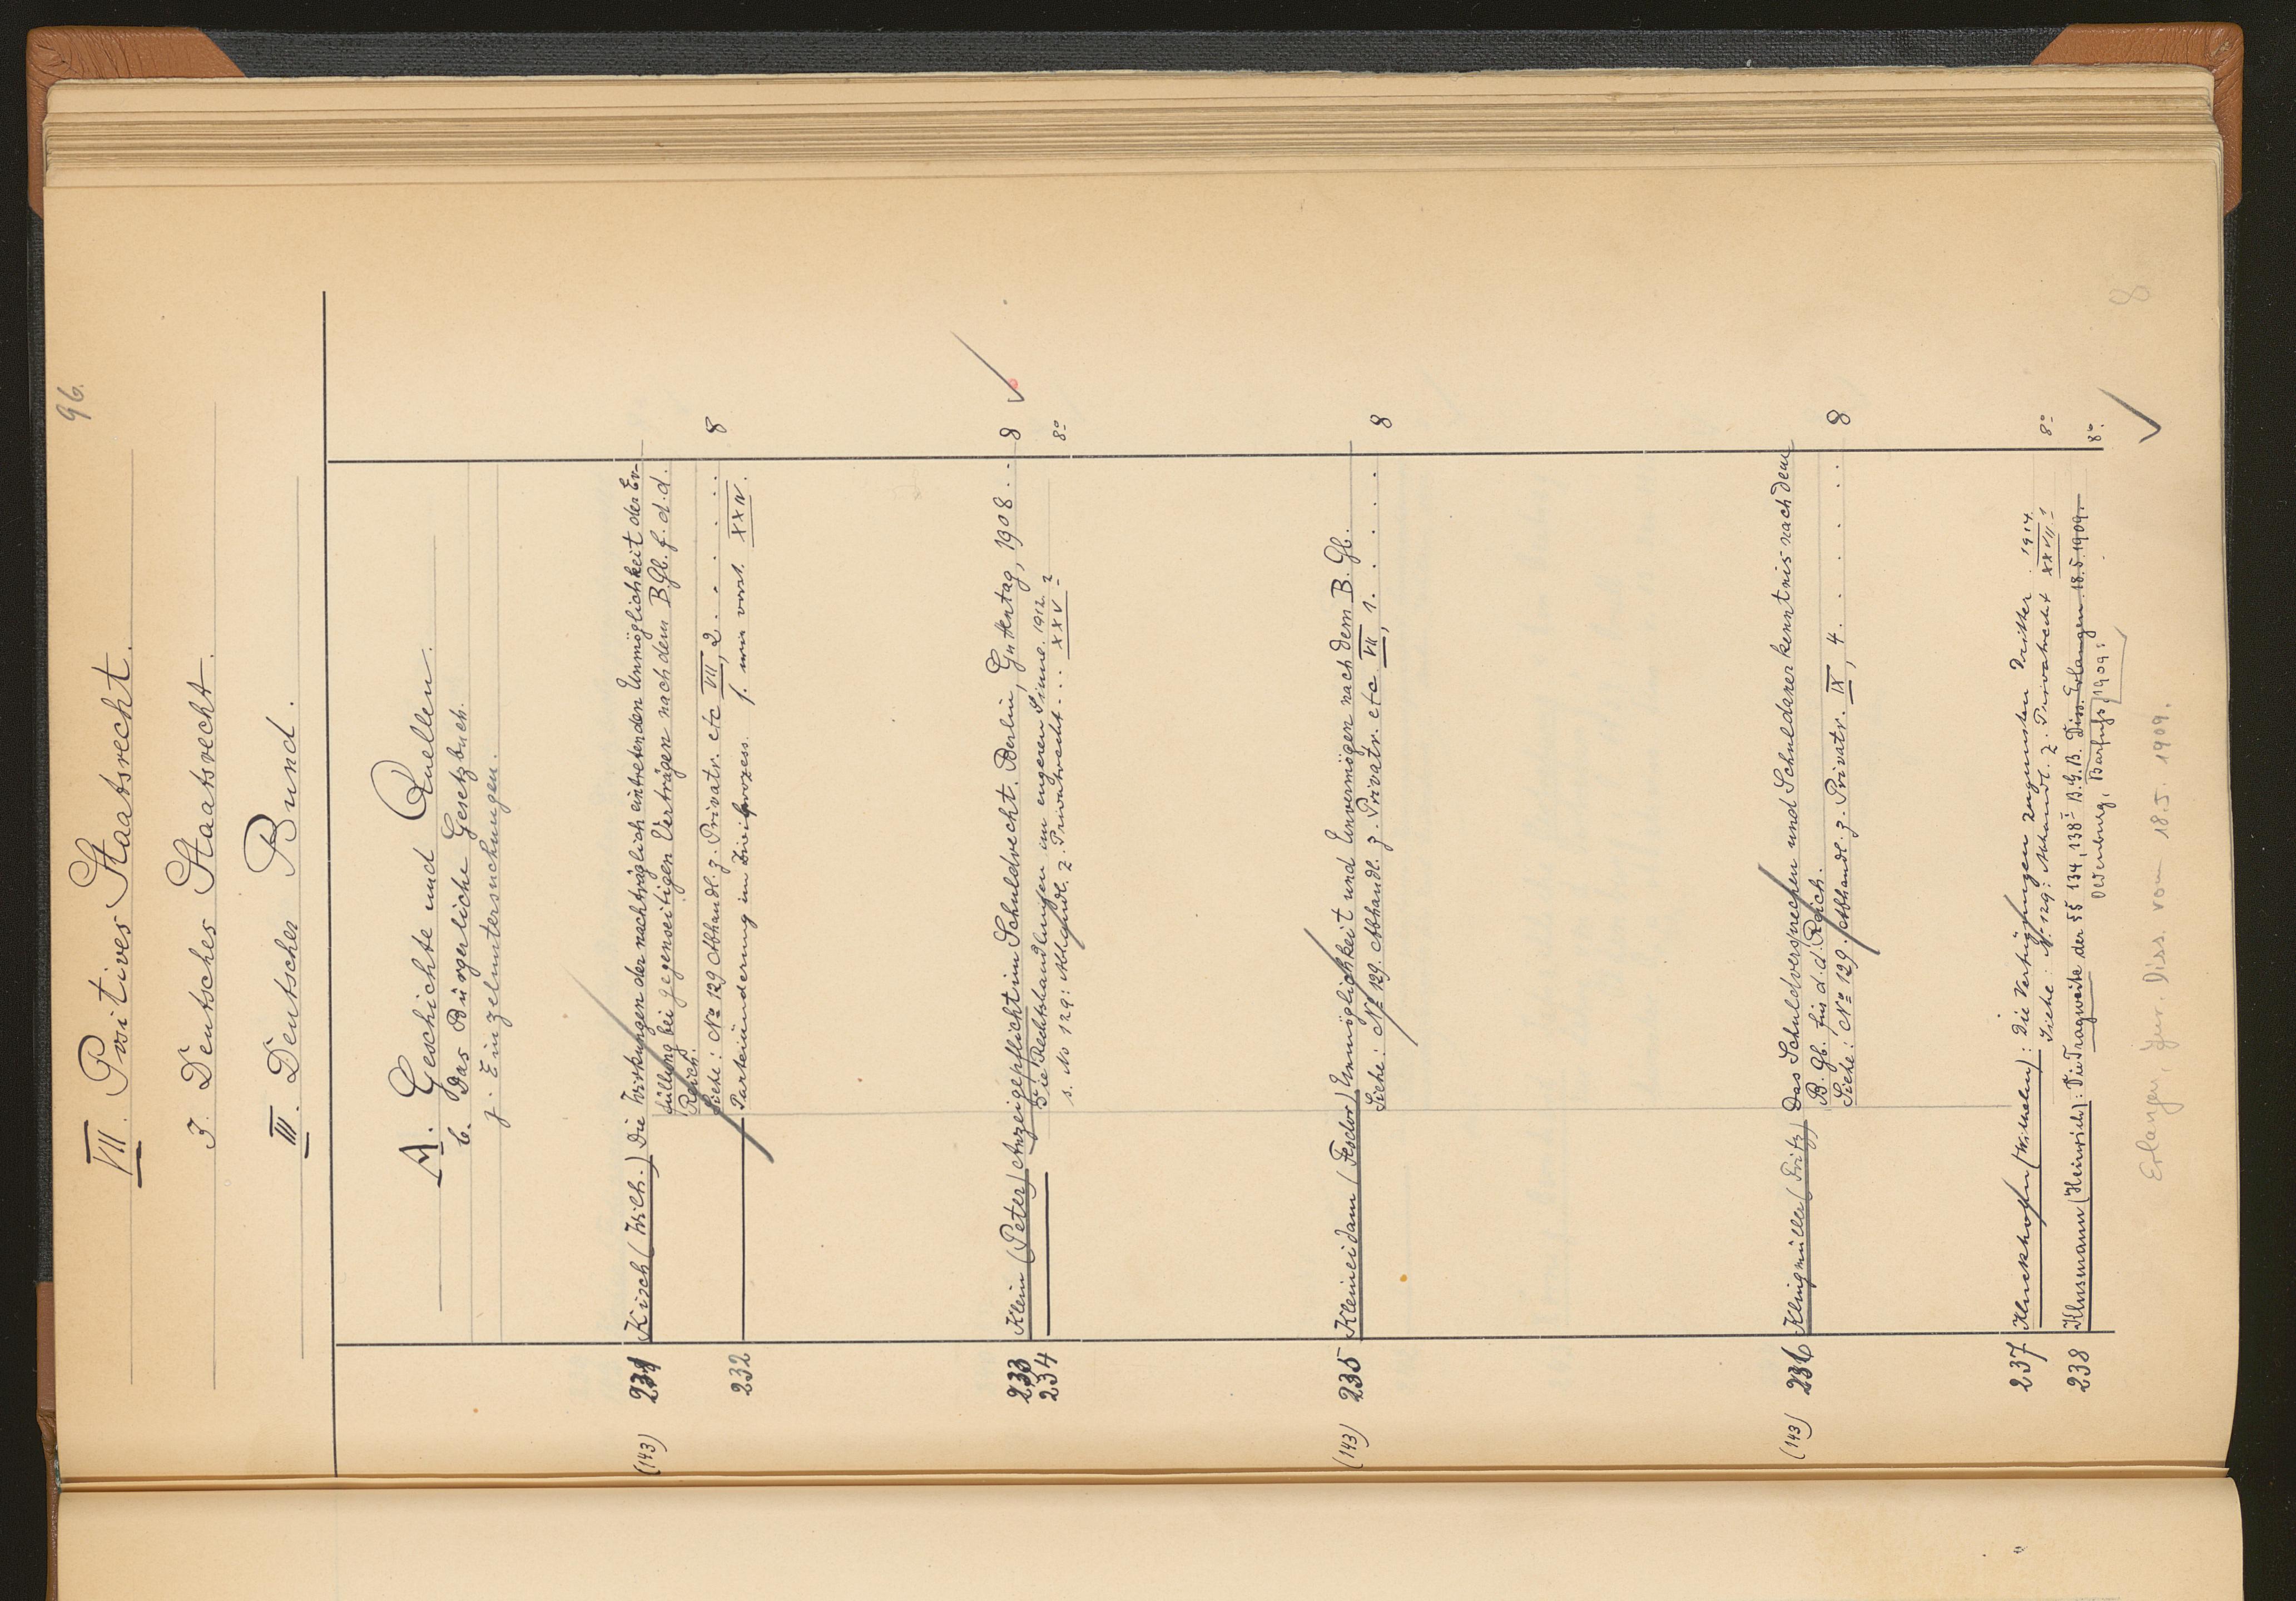 96.
VII. Positives Staatsrecht.
3. Deutsches Staatsrecht.
III. Deutscher Bund.
A. Geschichte und Quellen.
b. Das Bürgerliche Gesetzbuch.
z. Einzeluntersuchungen.
(143) 231 Kirsch (Wilh.) Die Wirkungen der nachträglich eintretenden Unmöglichkeit der Er-
füllung bei gegenseitigen Verträgen nach dem B. Gb. f. d. d.
Reich.
Siehe: No 129 Abhandl. z. Privatr. etc VII, 2. . . . . . 8
232 ——— Parteiänderung im Zivilprozess. s. wie vorst. XXIV.
233 Klein (Peter) Anzeigepflicht im Schuldrecht. Berlin, Guttentag, 1908 . . 8
234 ——— Die Rechtshandlungen im engeren Sinne. 1912.
s. No 129: Abhandl. z. Privatrecht . . . XXV 2 8o
(143) 235 Kleineidam (Feodor) Unmöglichkeit und Unvermögen nach dem B. Gb.
Siehe: No 129. Abhandl. z. Privatr. etc VII, 1. . . . . 8
(143) 236 Klingmüller (Fritz) Das Schuldversprechen und Schuldanerkenntnis nach dem
B. Gb. für d. d. Reich.
Siehe: No 129. Abhandl. z. Privatr. IX, 4. . . . . 8
237 Kluckhohn (Wilhelm): Die Verfügungen zugunsten Dritter. 1914.
Siehe: N. 129: Abhandl. z. Privatrecht XXVII 1 8o
238 Klusmann (Heinrich): Die Tragweite der §§ 134, 138 I B.G.B. Diss. Erlangen. 18.5.1909. 8o.
Oldenburg, Barfuß, 1909:
Erlangen, Jur. Diss. vom 18.5.1909. 8